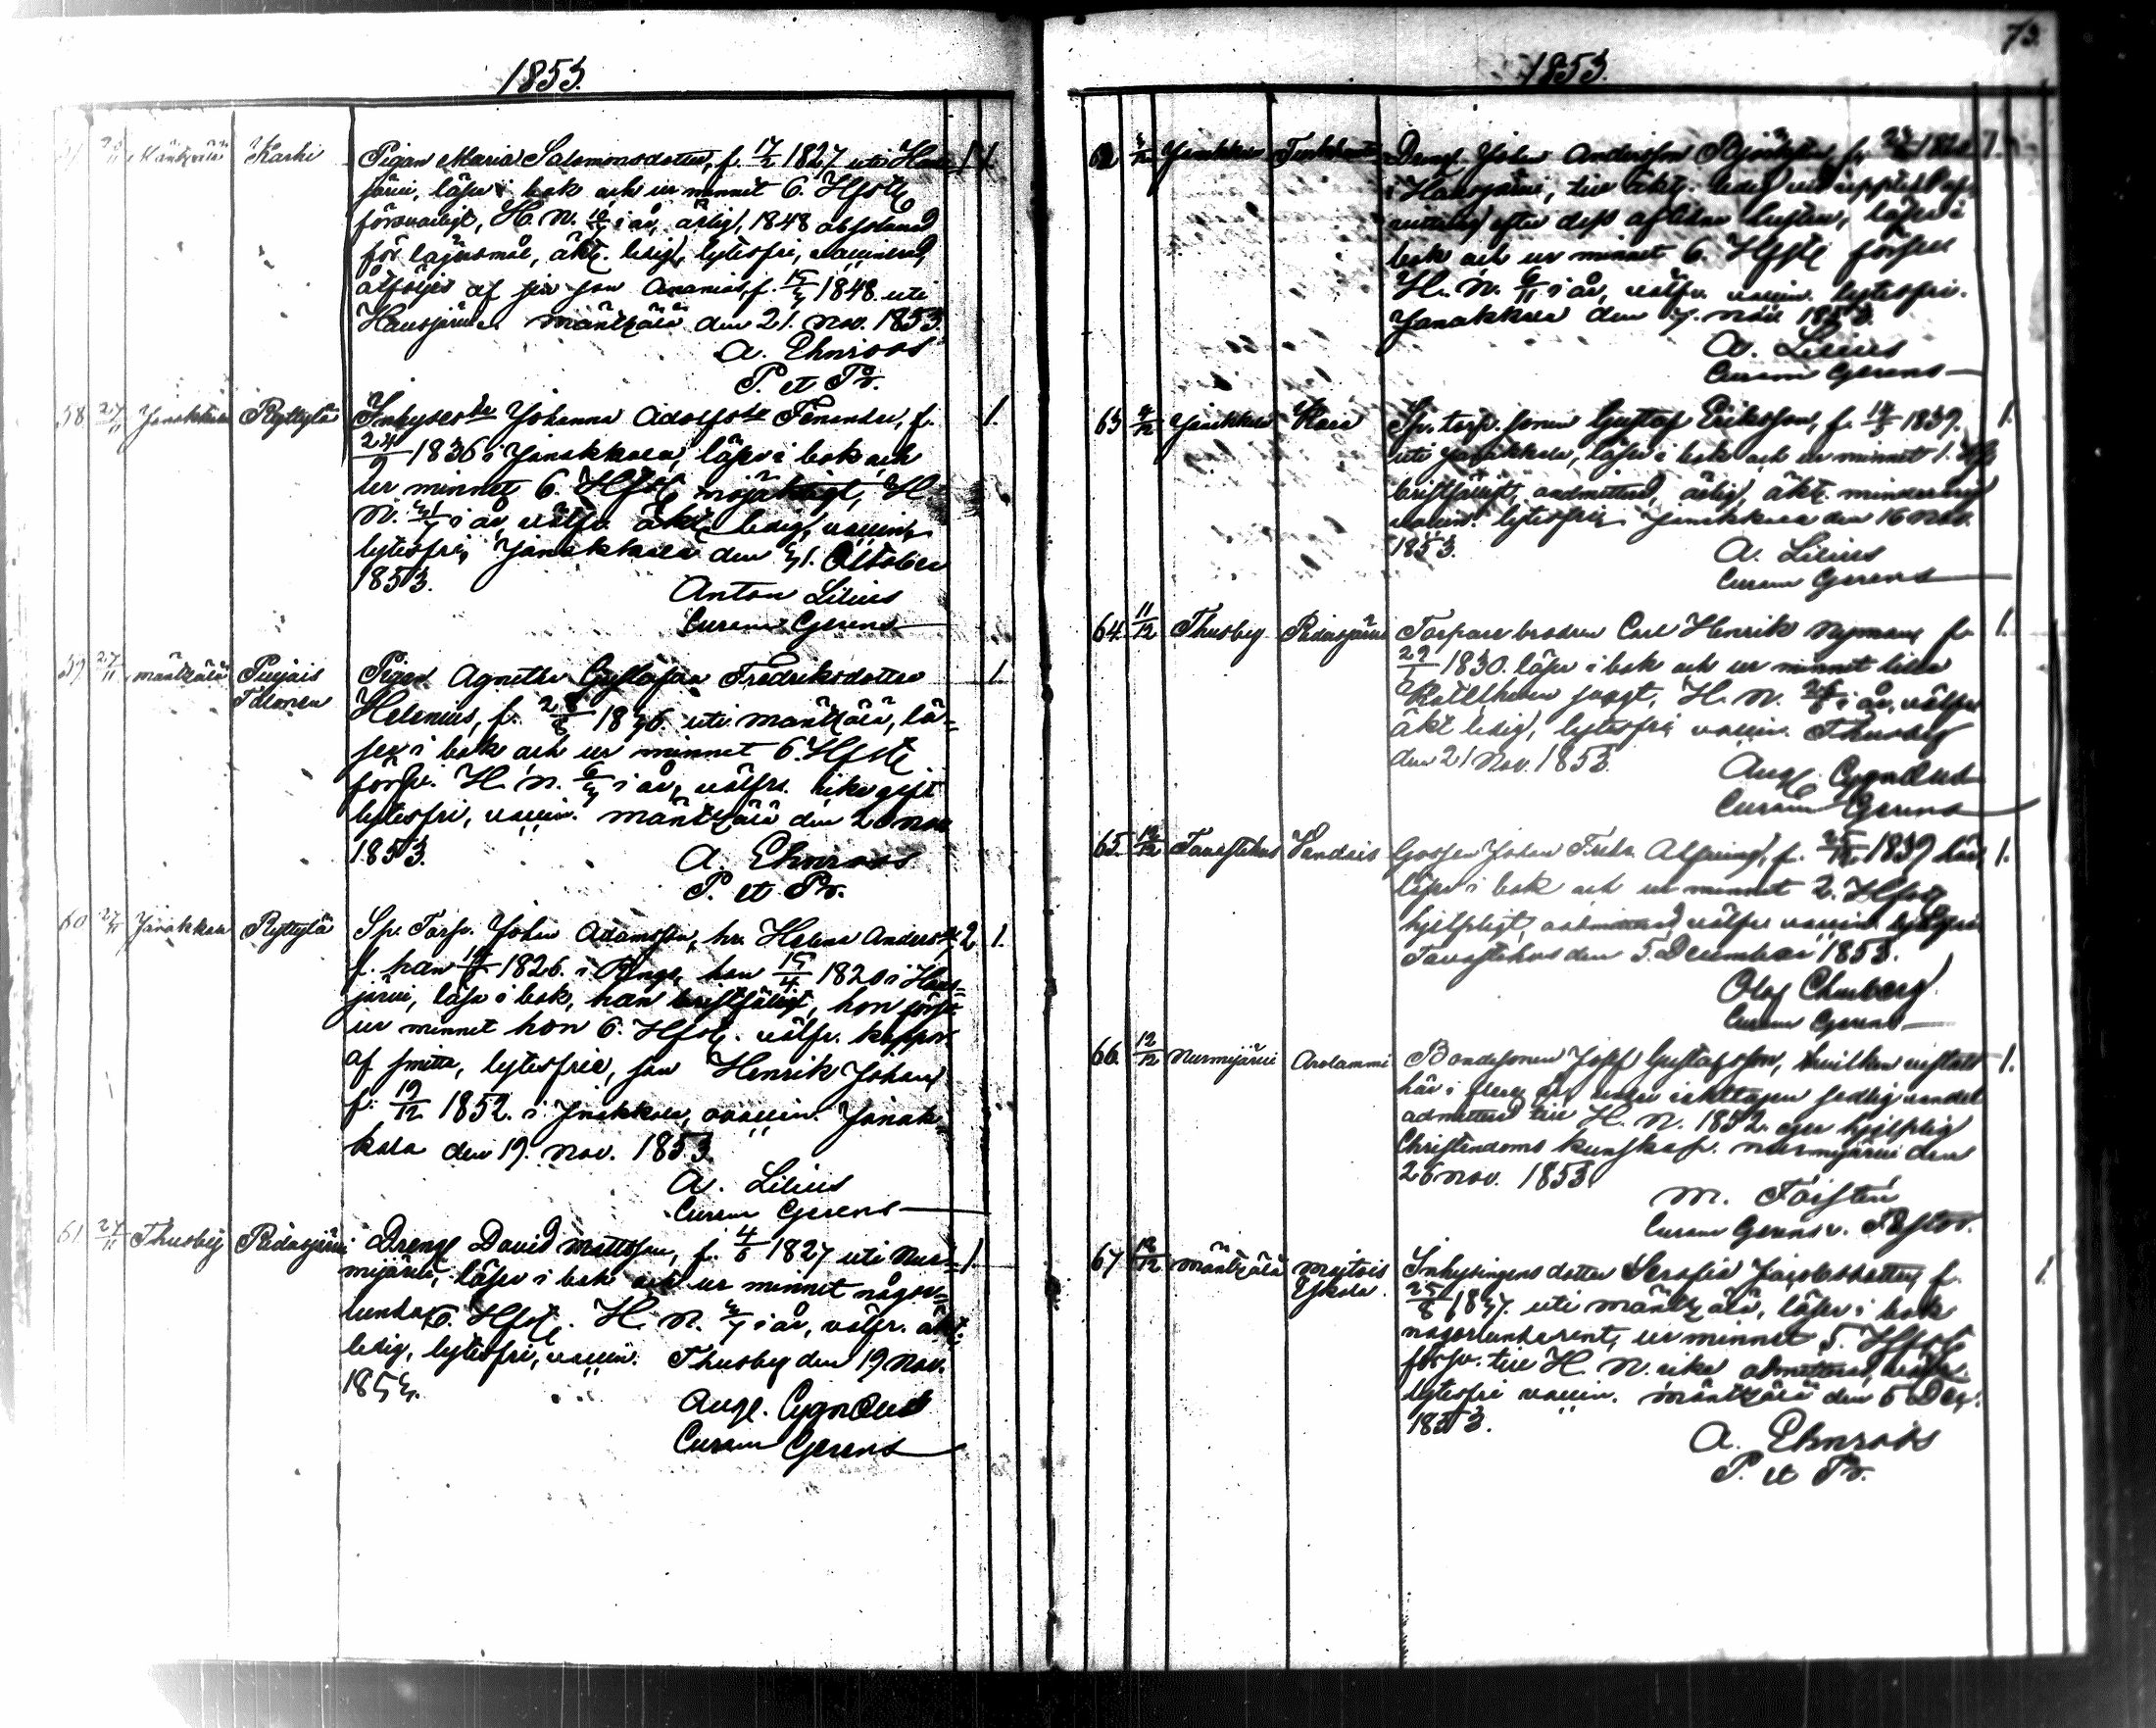 1853.
57 Mäntzälä Karhi Pigan Maria Salomonsdotter, f. 17/2 1827 uti Haus- 1 1.
järvi, läser i bok och ur minnet 6. Hfst.
försvarligt, H. N. i år, ärlig, 1848 absolverad
för lägersmål, äkt. ledig, lytesfri, vaccinerad,
åtföljes af sin son Ananias, f. 1848 uti
Hausjärvi. Mäntzälä den 21. Nov. 1853.
A. Ehnroos
P. et Pr.
58 27/11 Janakkala Ryttylä Inhyses dr Johanna Adolfsdr Fenander, f. 1.
24/9 1836 i Janakkala, läser i bok och
ur minnet 6. Hfst. nöjaktigt, H.
N. i år, välfr. äkt. ledig, vaccin.
lytesfri, Janakkala den 31. Oktober
1853.
Anton Lilius
Curam Gerens
59 27/11 Mäntzälä Puujais Pigan Agnetha Gustafva Fredriksdotter 1.
Talonen
Helenius, f. 28/8 1836 uti Mäntzälä, lä-
ser i bok och ur minnet 6. Hfst.
försv. H. N. 6/3 i år, välfrs. icke gift
lytesfri, vaccin. Mäntzälä den 20 Nov.
1853.
A. Ehnroos
P. et Pr.
60 27/11 Janakkala Ryttylä Sp. Torp. Johan Adamsson, hu. Helena Andersdr. 2 1.
f. han 1826. i hon 15/4 1820 i Haus-
järvi, läser i bok, han bristfälligt, hon försv.
ur minnet hon 6. Hfst. välfr. koppor
af smitta, lytesfrie, son Henrik Johan
f. 19/12 1852. i Janakkala, ovaccin. Janak-
kala den 19. Nov. 1853.
A. Lilius
Curam Gerens
61 27/11 Thusby Ridasjärvi Dreng David Mattsson, f. 4/6 1827 uti Nur- 1.
mijärvi, läser i bok och ur minnet någor-
lunda 6. Hfst. H. N. 3/7 i år, välfr. äkt.
ledig, lytesfri, vaccin. Thusby den 19 Nov.
1853.
Aug. Cygnæus
Curam Gerens
73.
1853.
62 Janakkala Dreng. Johan Andersson f. 1820 1.
i Hausjärvi, äkt. ledig
efter dess aflidna hustru, läser i
bok och ur minnet 6. Hfst. försv.
H. N. 6/11 i år, välfr. vaccin. lytesfri.
Janakkala den 7. Nov. 1853.
A. Lilius
Curam Gerens
63 4/12 Janakkala Kara Sp. torp. sonen Gustaf Eriksson, f. 14/3 1839. 1.
uti Janakkala, läser i bok och ur minnet 1. Hfst.
bristfälligt, oadmitterad, ärlig, äkt. minderårig
vaccin. lytesfri, Janakkala den 16 Nov.
1853.
A. Lilius
Curam Gerens
64. 11/12 Thusby Ridasjärvi Torpare brodren Carl Henrik Nyman, f. 1.
29/1 1830. läser i bok och ur minnet lilla
Katekesen svagt, H. N. i år, välfr.
äkt. ledig, lytesfri vaccin. Thusby
den 21 Nov. 1853.
Aug. Cygnæus
Curam Gerens
65. 12/12 Tavastehus Vandais Gossen Johan Fredr. f. 25/12 1839 här, 1.
läser i bok och ur minnet 2. Hfst.
hjelpligt, oadmitterad välfr. vaccin. lytesfri
Tavastehus den 5. December 1853.
Olof Chuberg
Curam Gerens
66. 12/12 Nurmijärvi Arolammi Bondesonen Josef Gustafsson, hvilken vistats 1.
här i flera år, under iakttagen sedlig vandel
admitterad till H. N. 1852. eger hjelplig
Christendoms kunskap. Nurmijärvi den
26 Nov. 1853
M. Törstén
Curam Gerens v. Pastor.
67 18/12 Mäntzälä Mejtois Inhysingens dotter Serafia Jacobsdotter, f. 1.
Eskola.
25/8 1837. uti Mäntzälä, läser i bok
någorlunda rent, ur minnet 5. Hfst.
försv. till H. N. icke admitterad, välfr.
lytesfri vaccin. Mäntzälä den 5 Dec.
1853.
A. Ehnroos
P. et Pr.